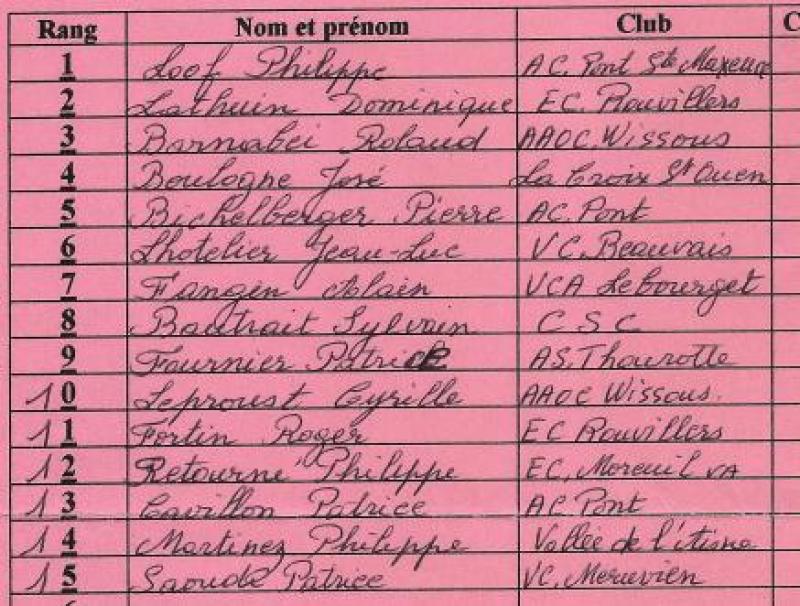 Rang Nom et prénom Club C
1 Loef Philippe AC. Pont Ste Maxence
2 Lathuin Dominique EC. Rouvillers
3 Barnabei Roland AAOC. Wissous
4 Boulogne José La Croix St Ouen
5 Bichelberger Pierre AC. Pont
6 Lhotelier Jean-Luc VC. Beauvais
7 Fangen Alain VCA Lebourget
8 Bautrait Sylvain C S C
9 Fournier Patrice AS. Thourotte
10 Leproust Cyrille AAOC Wissous.
11 Fortin Roger EC Rouvillers
12 Retourné Philippe EC. Moreuil VA
13 Cavillon Patrice AC Pont
14 Martinez Philippe Vallée de l'Aisne
15 Saoudé Patrice VC.